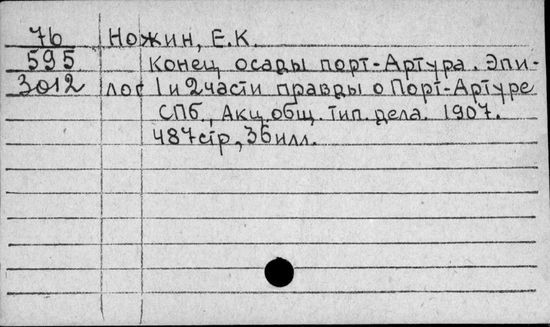 76 Ножин, Е.К.
595 Конец осады порт-Артура. Эпи-
3012 лог 1 и 2 части правды о Порт-Артуре
СПб., Акц. общ. тип. дела. 1907.
487 стр, 36 илл.